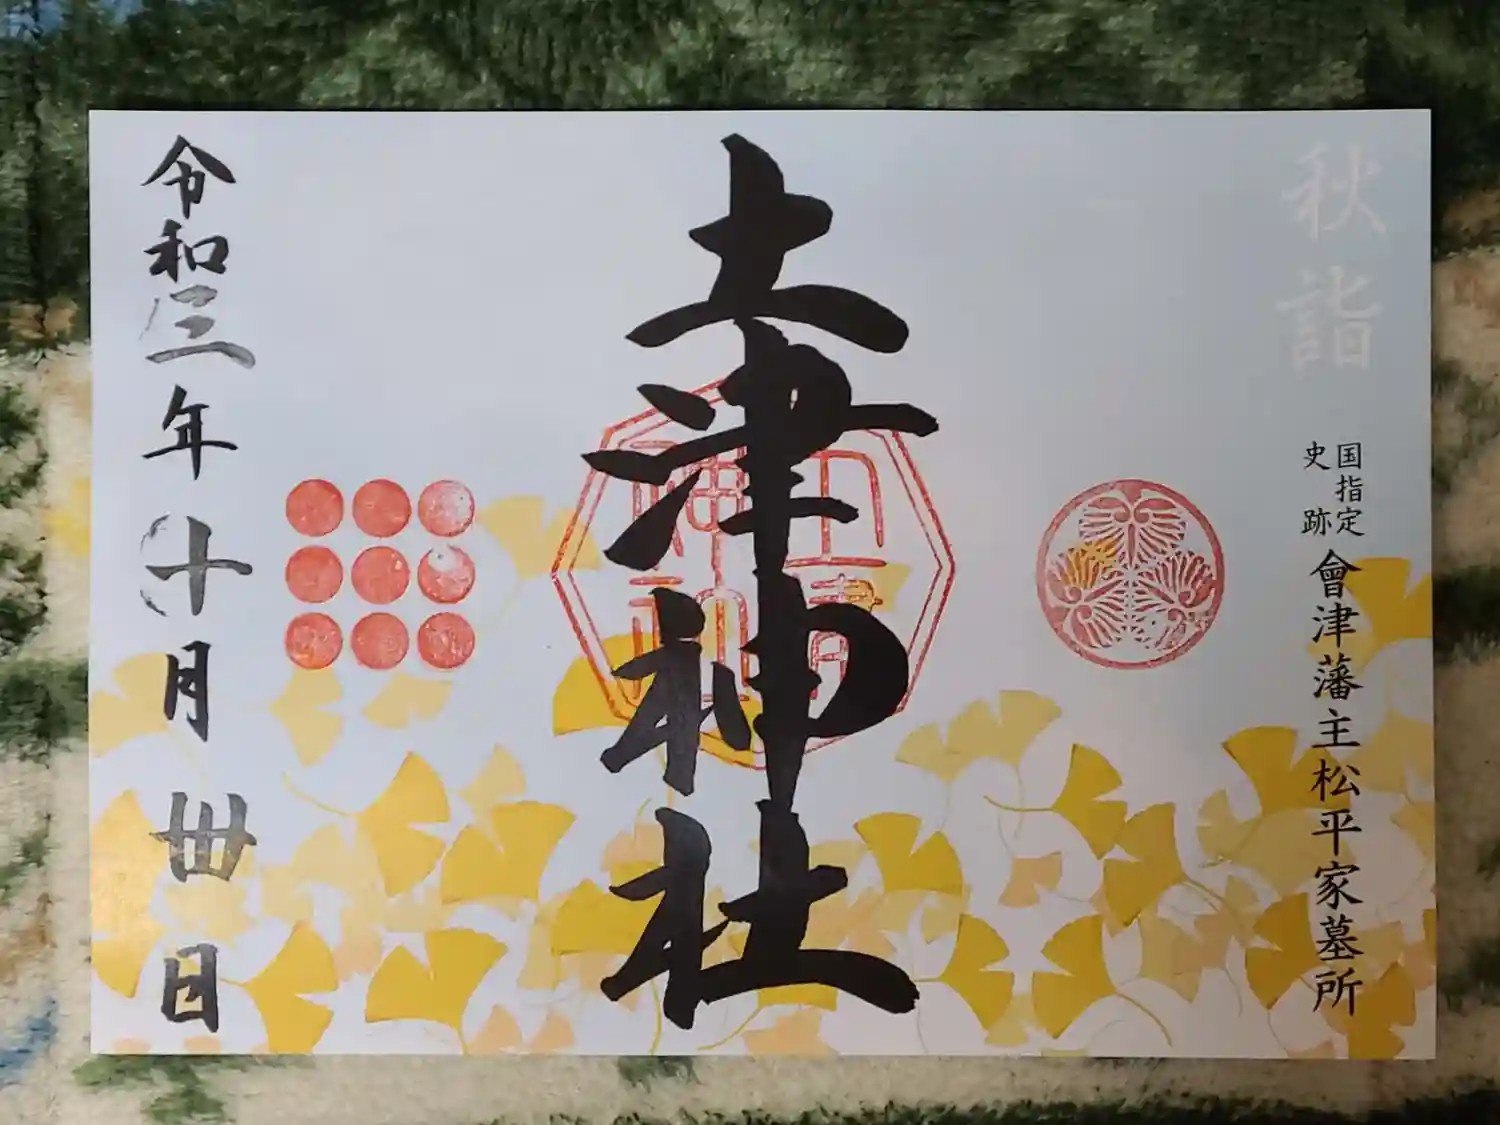 秋詣
国指定
史跡
會津藩主松平家墓所
土津神社
令和三年十月丗日